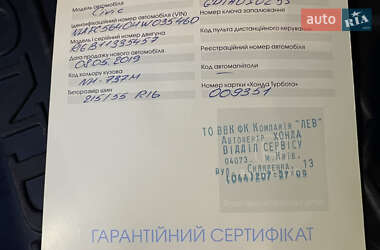 AUTO RIA
Модель автомобіля
Civic
Номер ключа запалювання
Ідентифікаційний номер автомобіля (VIN)
Код пульта дистанційного керування
Модель і серійний номер двигуна
Реєстраційний номер автомобіля
Дата продажу нового автомобіля
08.05.2019
Код автомагнітоли
Код кольору кузова
NH-737M
Номер картки «Хонда Турбота»
009351
Типорозмір шин
215/55 R16
ТО ВВК ФК Компанія "ЛЕВ"
Автоцентр ХОНДА
ВІДДІЛ СЕРВІСУ
04073 м.Київ,
вул. Скляренка, 13
(044)207-27-09
ГАРАНТІЙНИЙ СЕРТИФІКАТ